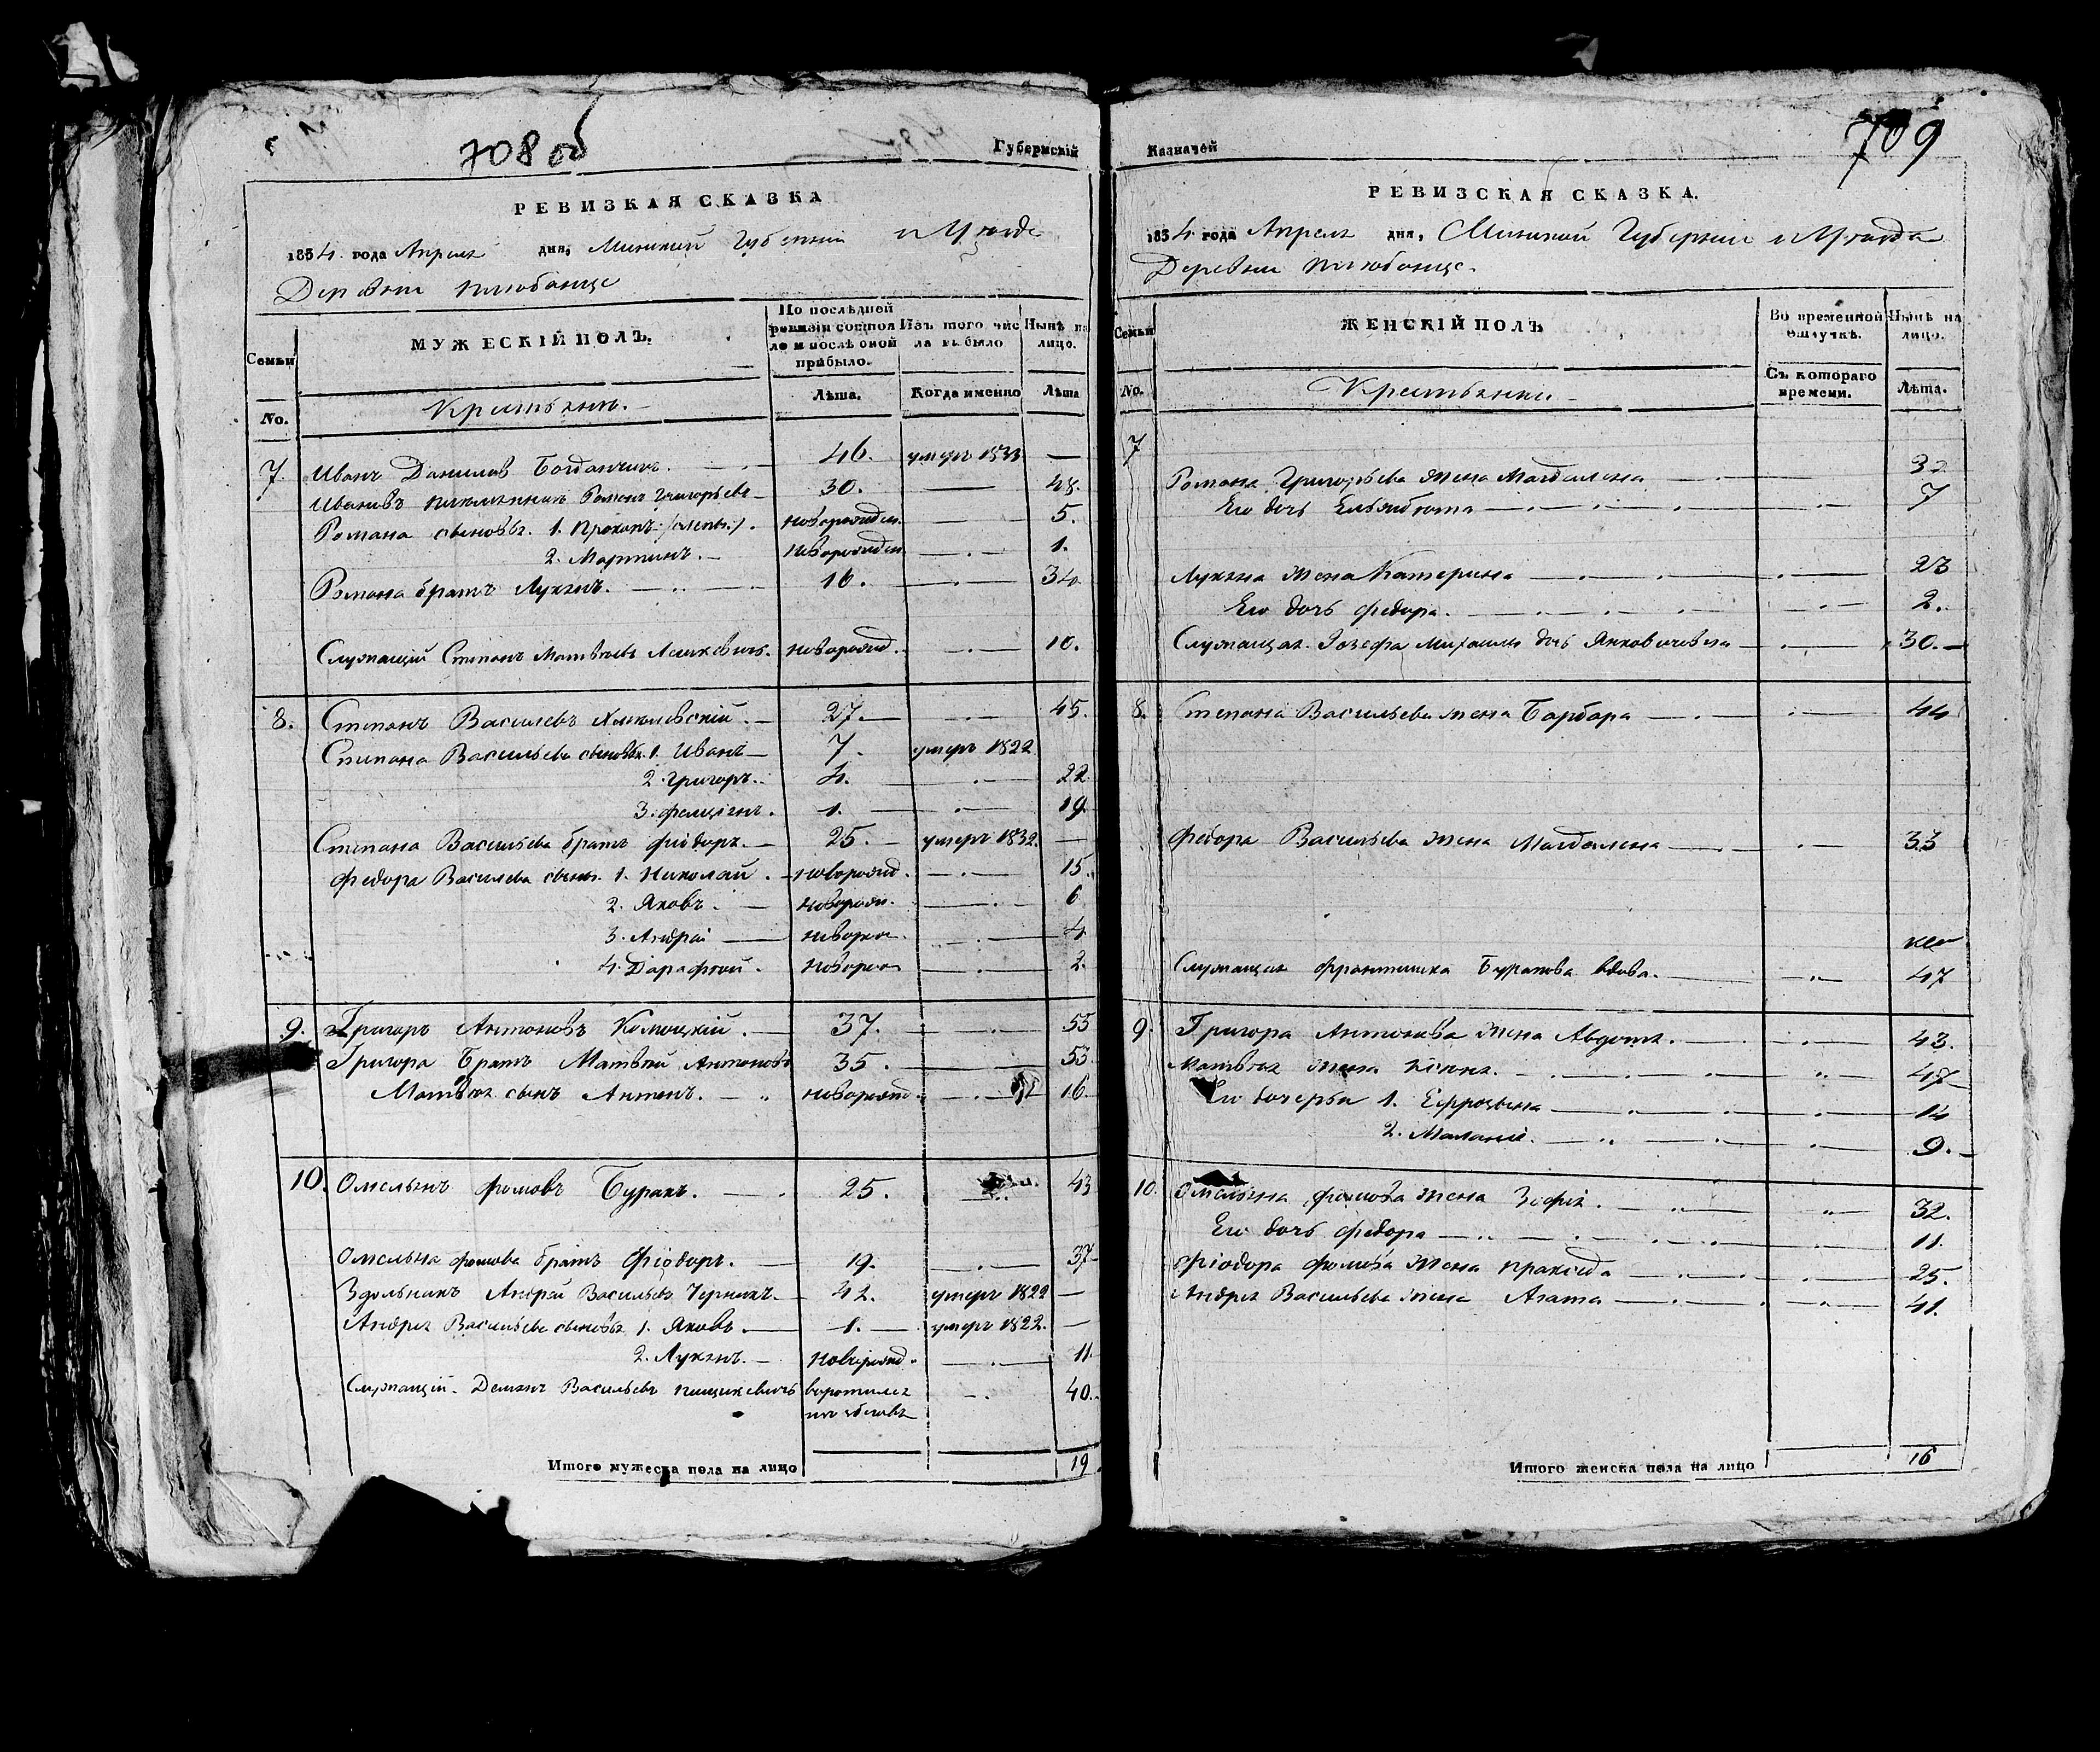 708 об
Губернскій
РЕВИЗКАЯ СКАЗКА
1834 года Апреля дня, Минской Губерніи и Уезда
Деревни
МУЖЕСКІЙ ПОЛЪ.
По последней ревизіи состояло и после оной прибыло.
Изъ того числа выбыло
Ныне на лицо.
Семьи
No.
Крестьяне.
Лета.
Когда именно
Лета
7. Иванъ Данилов Богданчикъ. 46. умеръ 1833 —
Ивановъ племянникъ Романъ Григорьевъ 30. — 48.
Романа сыновья. 1. Прокопъ новорожден. — 5.
2. Мартинъ. новорожден — 1.
Романа братъ Лукянъ. 16. — 34
Служащій Степанъ Матвеевъ новорожд. — 10.
8. Степанъ Василевъ 27. — 45.
Степана Васильева сыновья 1. Иванъ 7. умеръ 1822
2. Григоръ. 4. — 22
3. Фелиціянъ. 1. — 19.
Степана Васильева братъ Фіодоръ. 25. умеръ 1832. —
Федора Василева сыны. 1. Николай. новорожд. — 15.
2. Яковъ. новорож. — 6
3. Андрей новорож. — 4
4. Дарафей. новорож — 2.
9. Григоръ Антоновъ 37. — 55
Григора Братъ Матвей Антоновъ 35. — 53.
Матвея сынъ Антонъ. новорожд. — 16
10. Омельянъ Фомовъ Буракъ. 25. — 43
Омельяна Фомова братъ Фіодоръ. 19. — 37
Здольникъ Андрей Васильевъ Чернякъ. 42. умеръ 1822 —
Андрея Васильева сыновья 1. Яковъ. 1. умеръ 1822. —
2. Лукянъ. новорожд. — 11
Служащій. Демянъ Васильевъ воротился — 40.
Итого мужеска пола на лицо 19
Казначей
709
РЕВИЗСКАЯ СКАЗКА.
1834 года Апреля дня, Минской Губерніи и Уезда
Деревни
Семьи
No.
ЖЕНСКІЙ ПОЛЪ
Во временной отлучке.
Ныне на лицо.
Крестьянки
Съ котораго времени.
Лета.
7
Романа Григорьева жена Магдалена
Его дочь Ельзбюта 7
Лукяна жена Катерина 23
Его дочь Федора. 2.
Служащая. Іозефа Михаила дочь 30.
8. Степана Васильева жена Барбара 44
Федора Васильева жена Магдалена 33
Служащая Франтишка Буракова вдова. 47
9. Григора Антонова жена Авдотя. 43.
Матвея жена 47
Его дочерьи 1. Ефросина 14
2. Маланіе. 9.
10. Омеляна Фомова жена Зофія. 32.
Его дочь Федора 11.
Фіодора Фомова жена Праксѣда 25.
Андрея Васильева жена Агата 41.
Итого женска пола на лицо 16